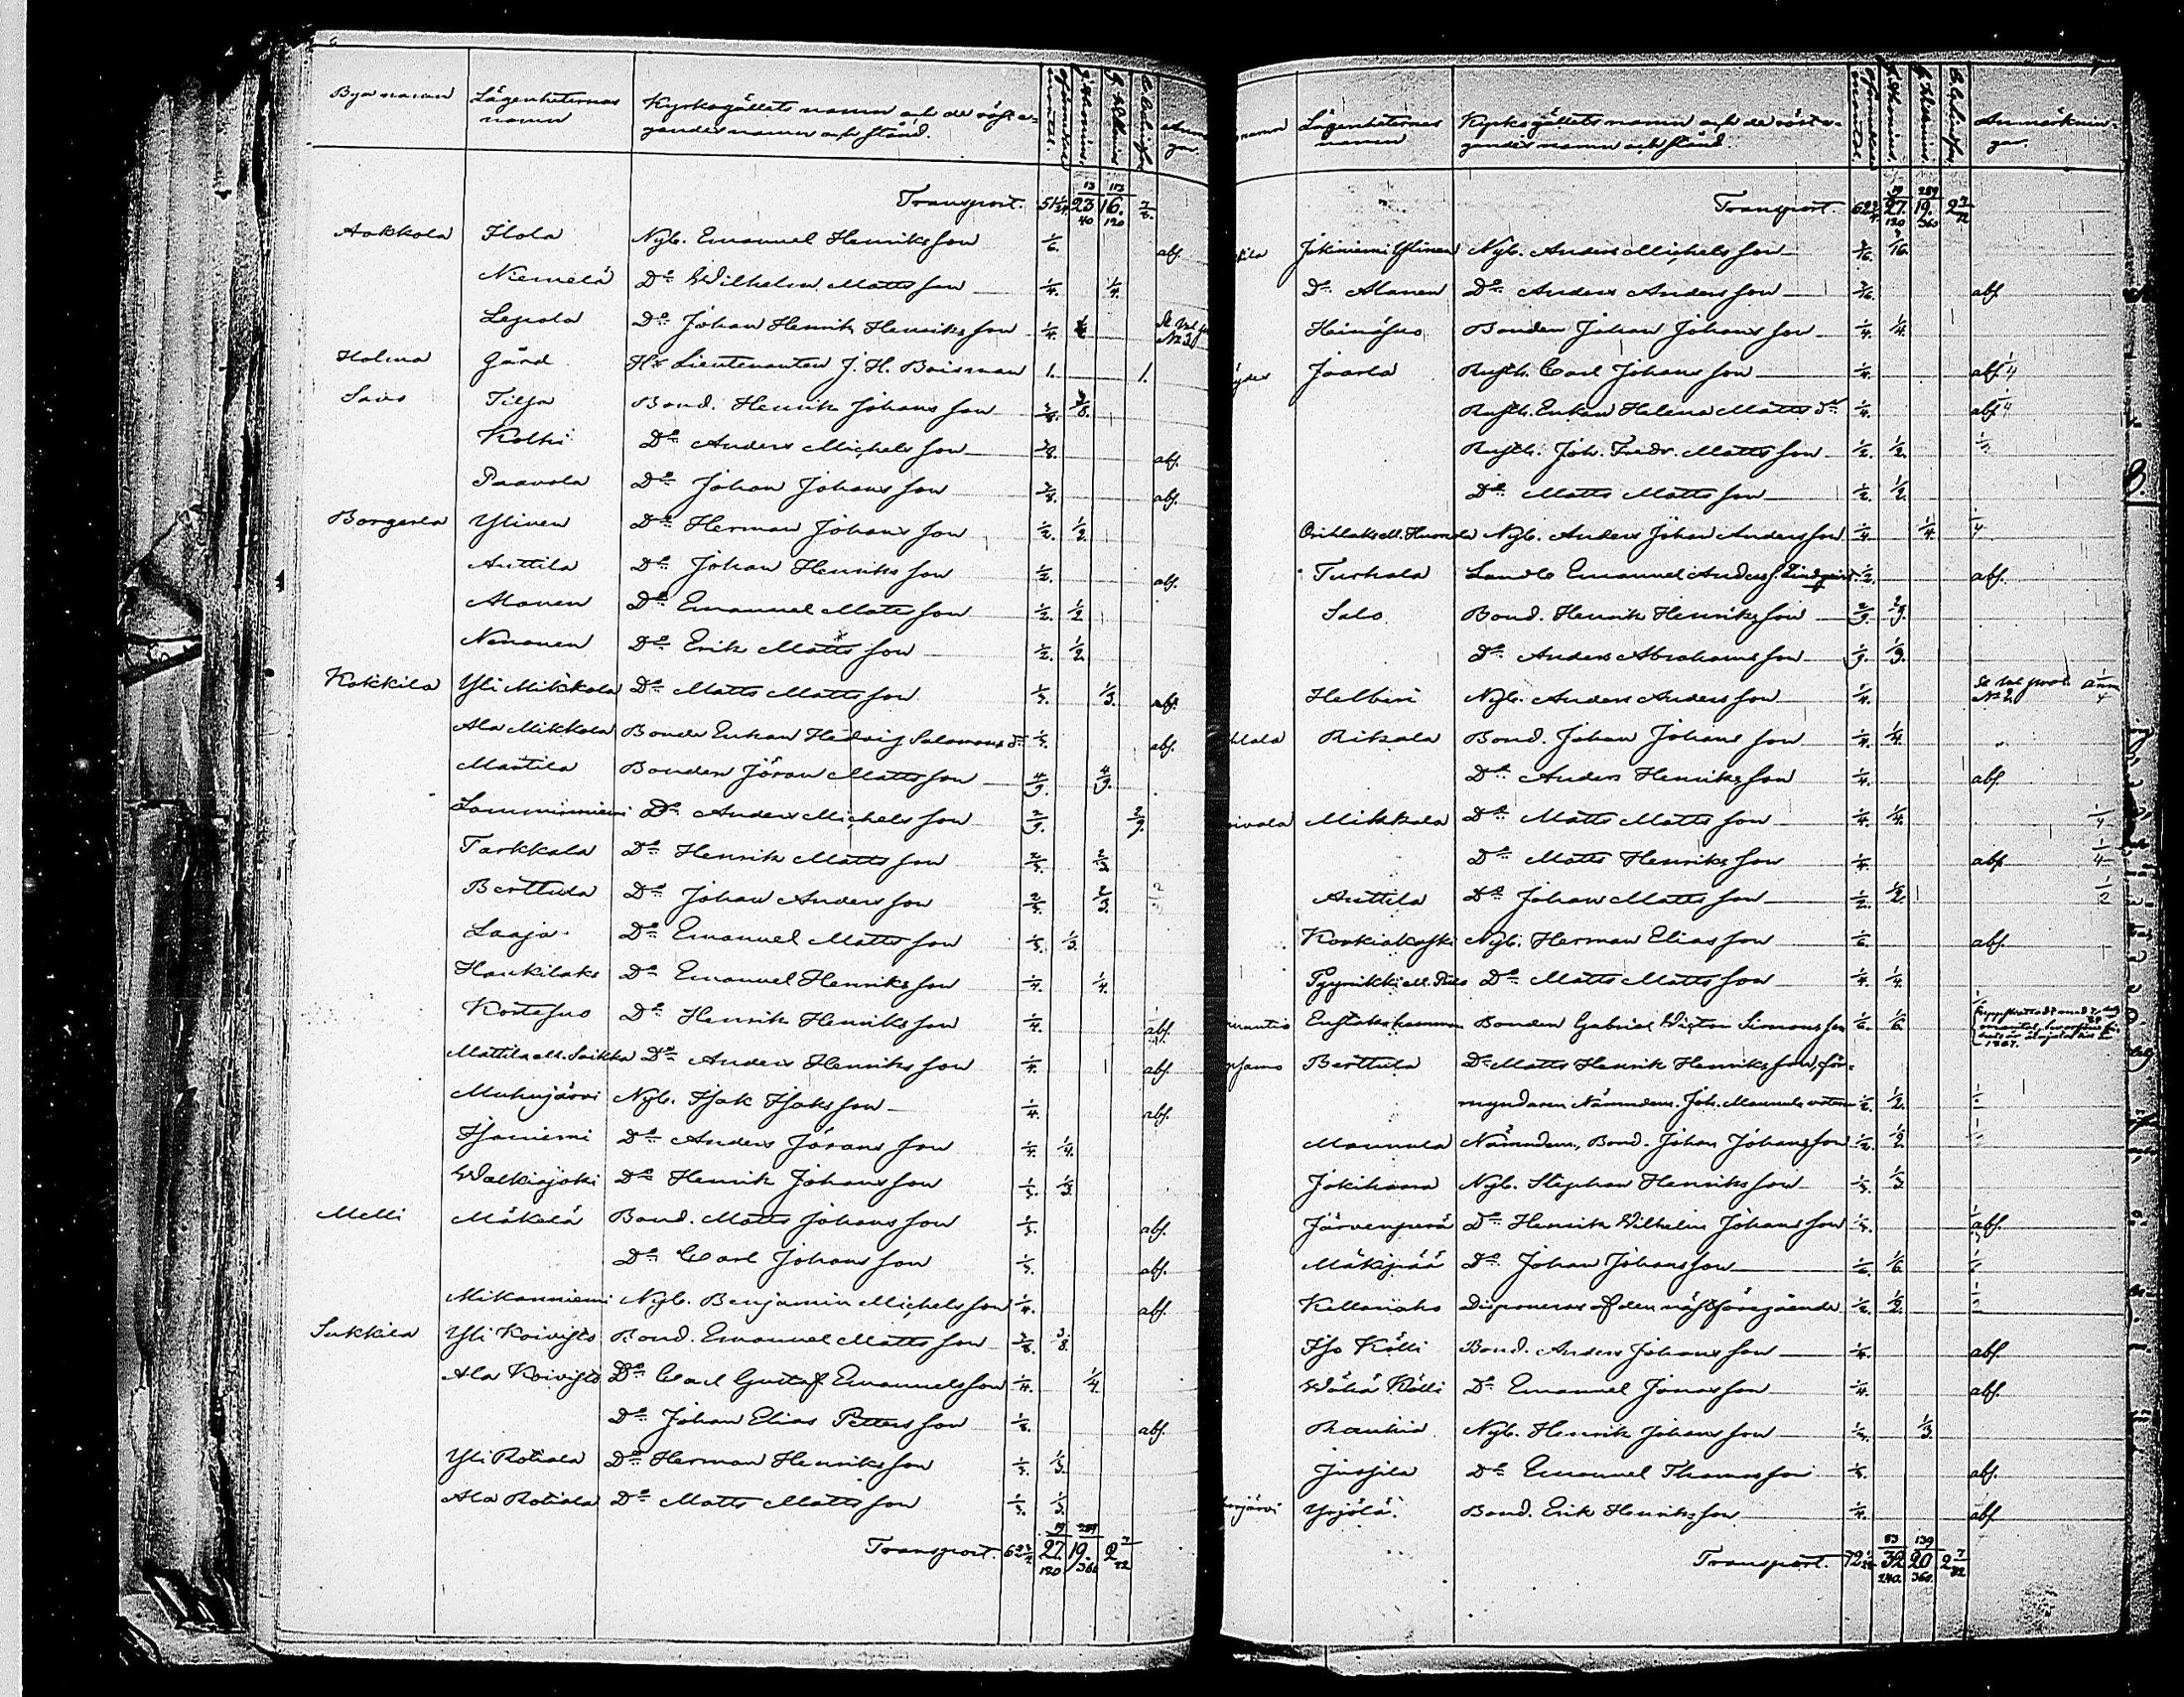 Byanamn Lägenheternas namn Kyrkogällets namn och de röstegandes namn och stånd.
Transport. 51 23 13/40 16 113/120
Aokkola Flola Nyb. Emanuel Henriksson 1/6. abs.
Niemelä D:o Wilhelm Mattsson 1/4. 1/4.
Lepola D:o Johan Henrik Henriksson 1/4.
Holma Gård Hr Lieutenanten J. H. Boisman 1. 1.
Savo Tilja Bond. Henrik Johansson 3/8. 3/8.
Kolhi D:o Anders Michelsson 3/8. abs.
Paavola D:o Johan Johansson abs.
Borgarla Ylinen D:o Herman Johansson 1/2. 1/2.
Anttila D:o Johan Henriksson 1/2. abs.
Alanen D:o Emanuel Mattsson 1/2. 1/2
Nenonen D:o Erik Mattsson 1/2. 1/2.
Kokkila Yli Mikkola D:o Matts Mattsson 1/3. 1/3. abs.
Ala Mikkola Bonde Enkan Hedvig Salomons d:r 1/3. abs.
Mattila Bonden Jöran Mattsson 4/9. 4/9.
Lamminniemi D:o Anders Michelsson 2/9. 2/9.
Tarkkala D:o Henrik Mattsson 2/3. 2/3
Berttula D:o Johan Andersson 2/3. 2/3.
Laaja D:o Emanuel Mattsson 1/3. 1/3.
Haukilaks D:o Emanuel Henriksson 1/4. 1/4.
Kortesuo D:o Henrik Henriksson 1/4. abs.
Mattila ell. Saikka D:o Anders Henriksson 1/4. abs.
Muhujärvi Nyb. Isak Isaksson 1/4. abs.
Isoniemi D:o Anders Jöransson 1/4. 1/4.
Walkiajoki D:o Henrik Johansson 1/3. 1/3.
Melli Mäkelä Bond. Matts Johansson 1/3. abs.
D:o Carl Johansson 1/3. abs.
Mikonniemi Nyb. Benjamin Michelsson 1/4. abs.
Sukkila Yli Koivisto Bond. Emanuel Mattsson 3/8. 3/8.
Ala Koivisto D:o Carl Gustaf Emanuelsson 1/4. 1/4.
D:o Johan Elias Pettersson 1/8. abs.
Yli Rotiala D:o Herman Henriksson 1/3. 1/3.
Ala Rotiala D:o Matts Mattsson 1/3. 1/3.
Transport. 62 27 19/120 19 289/360 2 7/72
namn Lägenheternas namn Kyrkogällets namn och de röstegandes namn och stånd. Anmärkningar.
Transport. 62 27 19/120 19 289/360 2 7/72
Jokiniemi Ylinen Nyb. Anders Michelsson 3/16. 3/16.
D:o Alanen D:o Anders Andersson 3/16. abs.
Heinäsuo Bonden Johan Johansson 1/4. 1/4.
Jaarla Rusth. Carl Johansson 1/4. abs. 1/4
Rusth. Enkan Helena Matts d:r 1/4. abs. 1/4
Rusth. Joh. Fredr. Mattsson 1/2. 1/2. 1/2
D:o Matts Mattsson 1/2. 1/2.
Nyb. Anders Johan Andersson 1/4. 1/4. 1/4
Turkala Landb Emanuel Anderss. Lindqvist 1/2. abs.
Salo Bond. Henrik Henriksson 2/9. 2/9.
D:o Anders Abrahamsson 1/9. 1/9.
Helberi Nyb. Anders Andersson 1/4.
Rikala Bond. Johan Johansson 1/4. 1/4.
D:o Anders Henriksson 1/4. abs.
Mikkola D:o Matts Mattsson 1/4. 1/4. 1/4
D:o Matts Henriksson 1/4. abs. 1/4
Anttila D:o Johan Mattsson 1/2. 1/2. 1/2
Koskiakoski Nyb. Herman Eliasson 1/6. abs.
D:o Matts Mattsson 1/4. 1/4.
Bonden Gabriel Wictor Simonsson 1/6. 1/6.
Berttula D:o Matts Henrik Henriksson, förmyndaren Nämndem. Joh. Mannula 1/2. 1/2.
Mannula Nämndem., Bond. Johan Johansson 1/2. 1/2.
Jokihaara Nyb. Stephan Henriksson 1/3. 1/3.
Järvenperä D:o Henrik Wilhelm Johansson 1/3. abs.
Mäkipää D:o Johan Johansson 1/6. 1/6.
Kalloniaho Disponeras af den näst föregående 1/2. 1/2.
Iso Kölli Bond. Anders Johansson 1/4. abs.
Wähä Kölli D:o Emanuel Jonasson 1/4. abs.
Rauhia Nyb. Henrik Johansson 1/3. 1/3.
Jussila D:o Emanuel Thomasson 1/3. abs.
Yrjölä Bond. Erik Henriksson 1/4. abs
Transport. 72 32 53/240 20 139/360 2 7/72